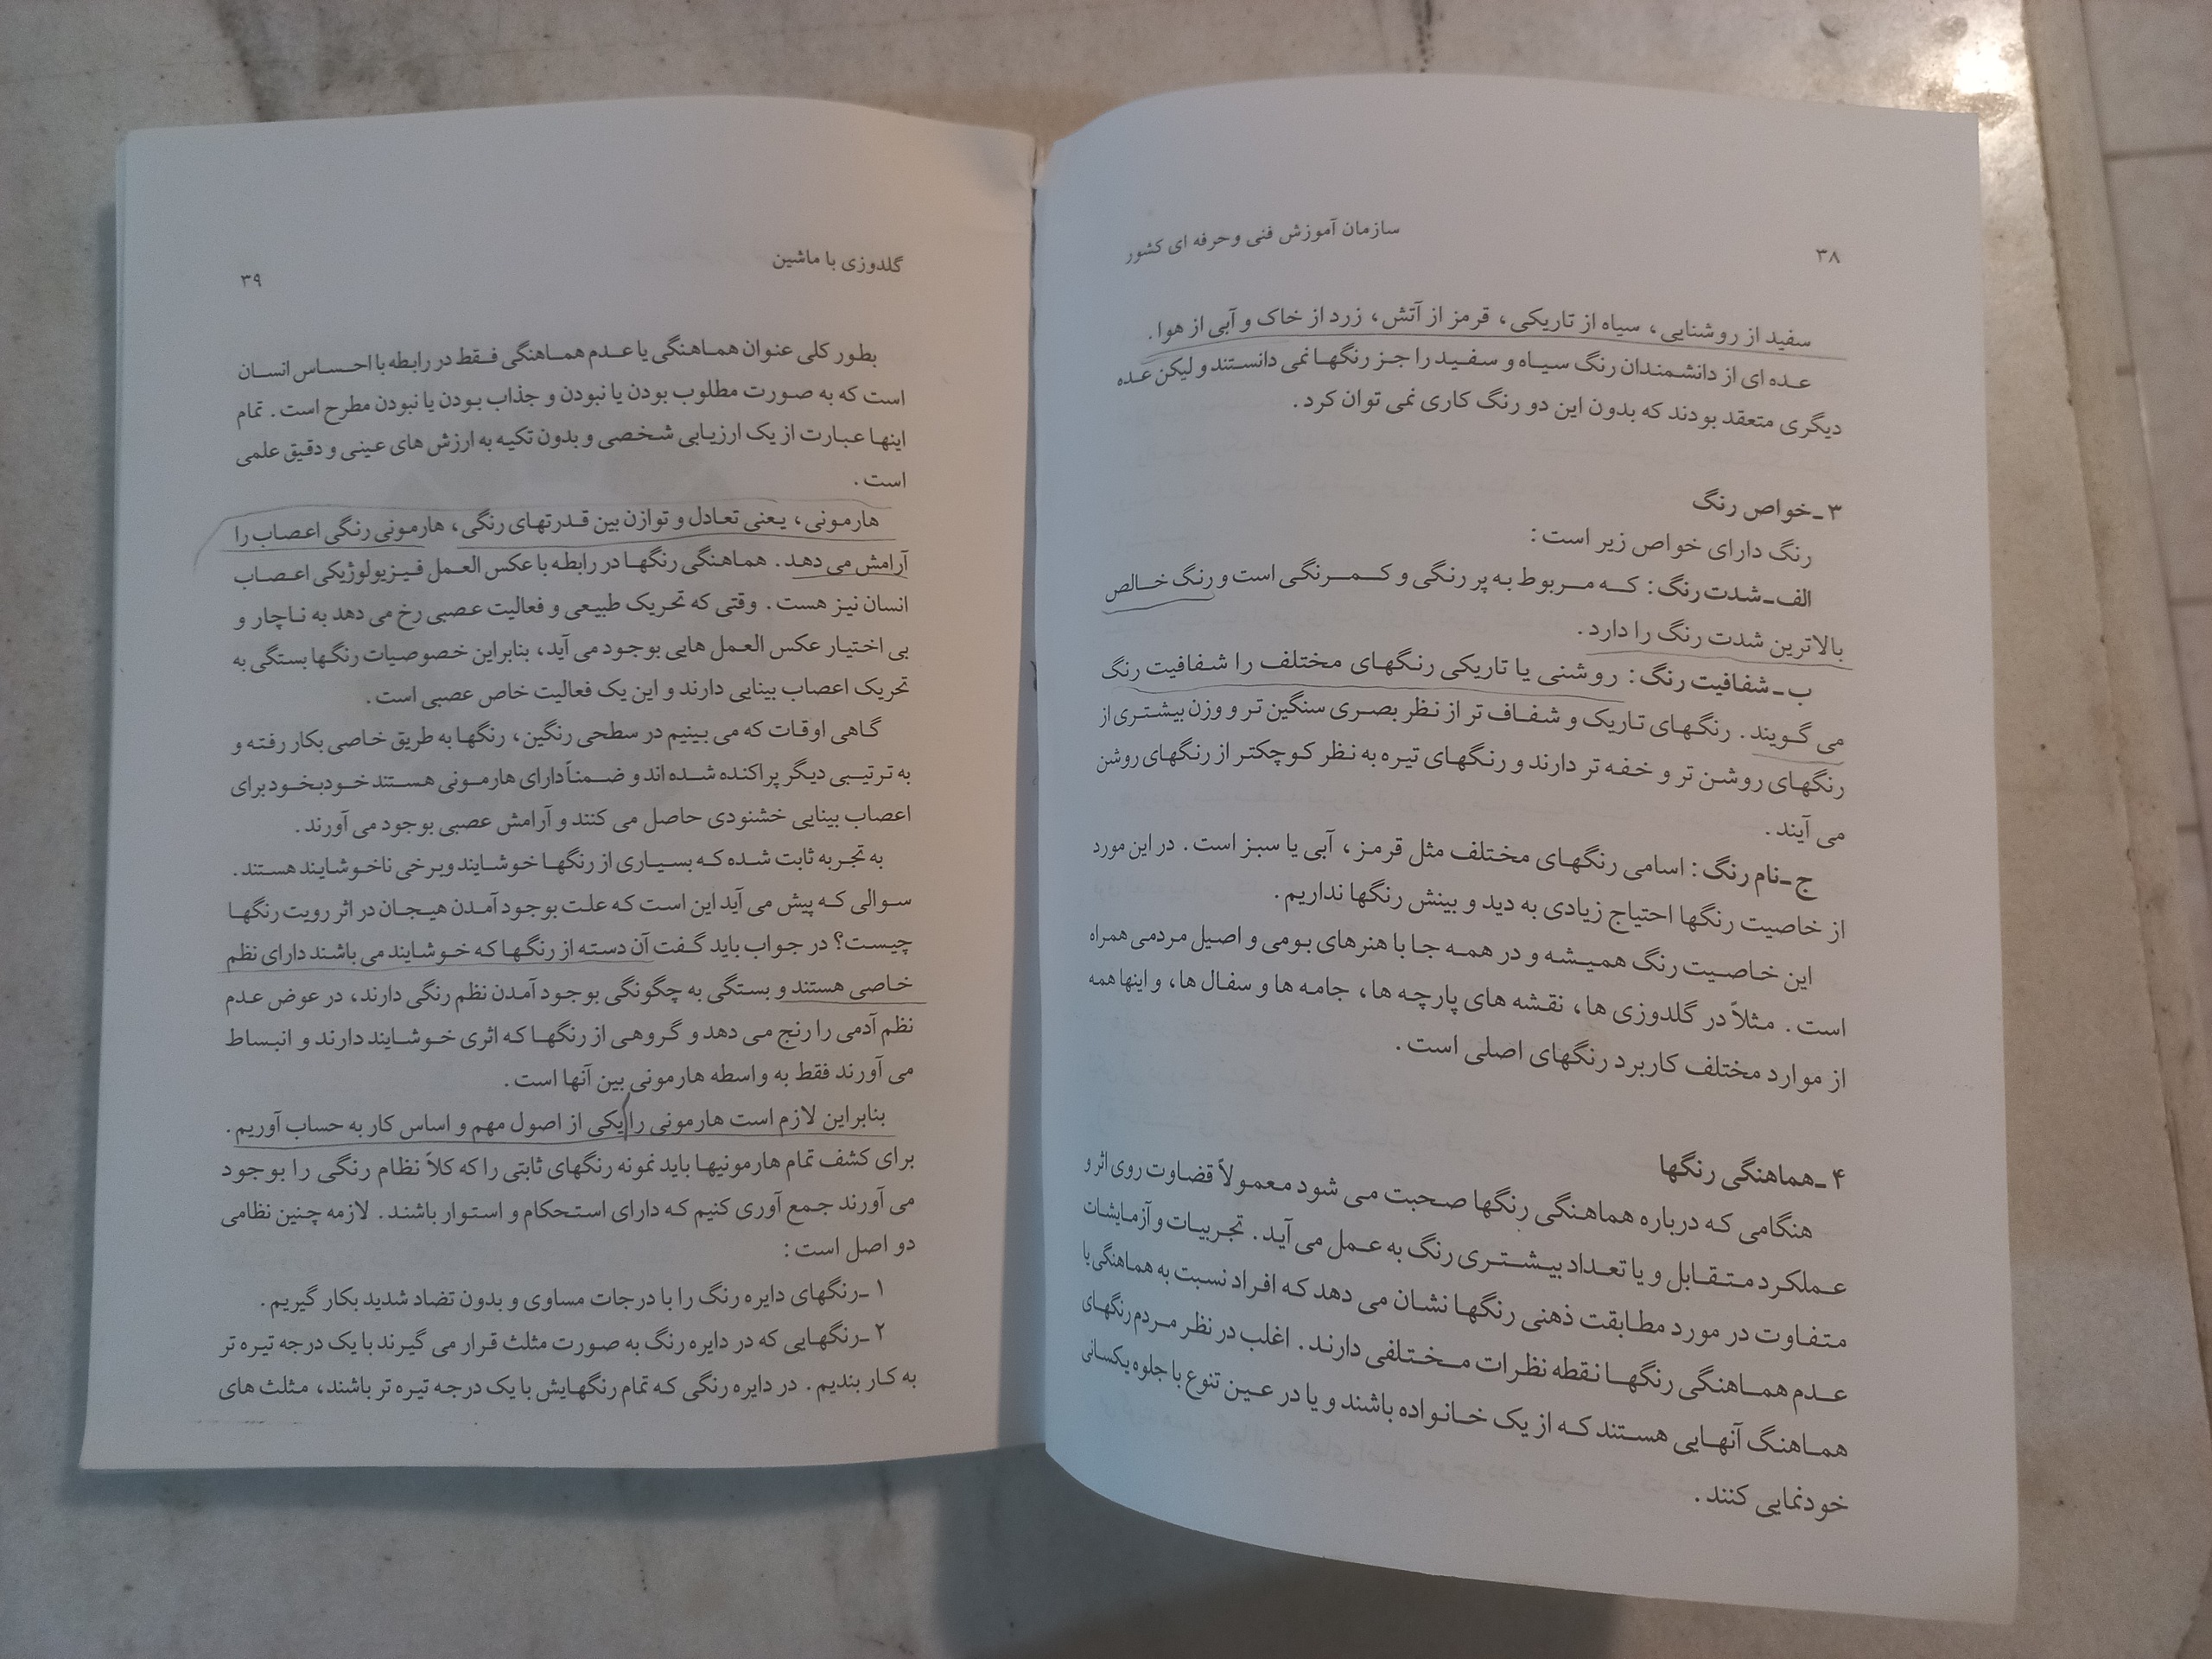 ۳۸
سازمان آموزش فنی و حرفه ای کشور
سفید از روشنایی، سیاه از تاریکی، قرمز از آتش، زرد از خاک و آبی از هوا.
عده ای از دانشمندان رنگ سیاه و سفید را جز رنگها نمی دانستند و لیکن عده
دیگری متعقد بودند که بدون این دو رنگ کاری نمی توان کرد.
۳ـ خواص رنگ
رنگ دارای خواص زیر است:
الف ـ شدت رنگ: که مربوط به پر رنگی و کمرنگی است و رنگ خالص
بالاترین شدت رنگ را دارد.
ب ـ شفافیت رنگ: روشنی یا تاریکی رنگهای مختلف را شفافیت رنگ
می گویند. رنگهای تاریک و شفاف تر از نظر بصری سنگین تر و وزن بیشتری از
رنگهای روشن تر و خفه تر دارند و رنگهای تیره به نظر کوچکتر از رنگهای روشن
می آیند.
ج ـ نام رنگ: اسامی رنگهای مختلف مثل قرمز، آبی یا سبز است. در این مورد
از خاصیت رنگها احتیاج زیادی به دید و بینش رنگها نداریم.
این خاصیت رنگ همیشه و در همه جا با هنرهای بومی و اصیل مردمی همراه
است. مثلاً در گلدوزی ها، نقشه های پارچه ها، جامه ها و سفال ها، و اینها همه
از موارد مختلف کاربرد رنگهای اصلی است.
۴ ـ هماهنگی رنگها
هنگامی که درباره هماهنگی رنگها صحبت می شود معمولاً قضاوت روی اثر و
عملکرد متقابل و یا تعداد بیشتری رنگ به عمل می آید. تجربیات و آزمایشات
متفاوت در مورد مطابقت ذهنی رنگها نشان می دهد که افراد نسبت به هماهنگی یا
عدم هماهنگی رنگها نقطه نظرات مختلفی دارند. اغلب در نظر مردم رنگهای
هماهنگ آنهایی هستند که از یک خانواده باشند و یا در عین تنوع با جلوه یکسانی
خودنمایی کنند.
گلدوزی با ماشین
۳۹
بطور کلی عنوان هماهنگی یا عدم هماهنگی فقط در رابطه با احساس انسان
است که به صورت مطلوب بودن یا نبودن و جذاب بودن یا نبودن مطرح است. تمام
اینها عبارت از یک ارزیابی شخصی و بدون تکیه به ارزش های عینی و دقیق علمی
است.
هارمونی، یعنی تعادل و توازن بین قدرتهای رنگی، هارمونی رنگی اعصاب را
آرامش می دهد. هماهنگی رنگها در رابطه با عکس العمل فیزیولوژیکی اعصاب
انسان نیز هست. وقتی که تحریک طبیعی و فعالیت عصبی رخ می دهد به ناچار و
بی اختیار عکس العمل هایی بوجود می آید، بنابراین خصوصیات رنگها بستگی به
تحریک اعصاب بینایی دارند و این یک فعالیت خاص عصبی است.
گاهی اوقات که می بینیم در سطحی رنگین، رنگها به طریق خاصی بکار رفته و
به ترتیبی دیگر پراکنده شده اند و ضمناً دارای هارمونی هستند خودبخود برای
اعصاب بینایی خشنودی حاصل می کنند و آرامش عصبی بوجود می آورند.
به تجربه ثابت شده که بسیاری از رنگها خوشایند و برخی ناخوشایند هستند.
سوالی که پیش می آید این است که علت بوجود آمدن هیجان در اثر رویت رنگها
چیست؟ در جواب باید گفت آن دسته از رنگها که خوشایند می باشند دارای نظم
خاصی هستند و بستگی به چگونگی بوجود آمدن نظم رنگی دارند، در عوض عدم
نظم آدمی را رنج می دهد و گروهی از رنگها که اثری خوشایند دارند و انبساط
می آورند فقط به واسطه هارمونی بین آنها است.
بنابراین لازم است هارمونی را یکی از اصول مهم و اساس کار به حساب آوریم.
برای کشف تمام هارمونیها باید نمونه رنگهای ثابتی را که کلاً نظام رنگی را بوجود
می آورند جمع آوری کنیم که دارای استحکام و استوار باشند. لازمه چنین نظامی
دو اصل است:
۱ ـ رنگهای دایره رنگ را با درجات مساوی و بدون تضاد شدید بکار گیریم.
۲ ـ رنگهایی که در دایره رنگ به صورت مثلث قرار می گیرند با یک درجه تیره تر
به کار بندیم. در دایره رنگی که تمام رنگهایش با یک درجه تیره تر باشند، مثلث های